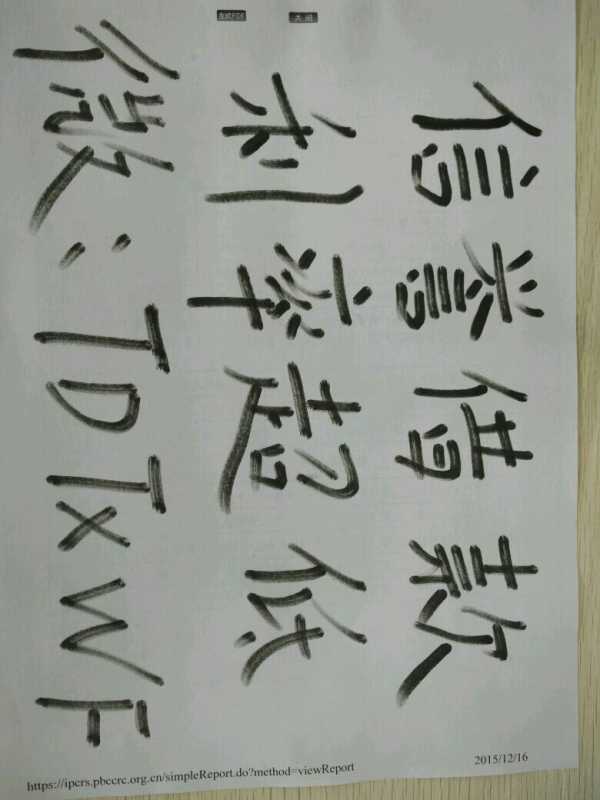 信誉借款
利率超低
微:TDTXWF
2015/12/16
https://ipcrs.pbccrc.org.cn/simpleReport.do?method=viewReport
关闭